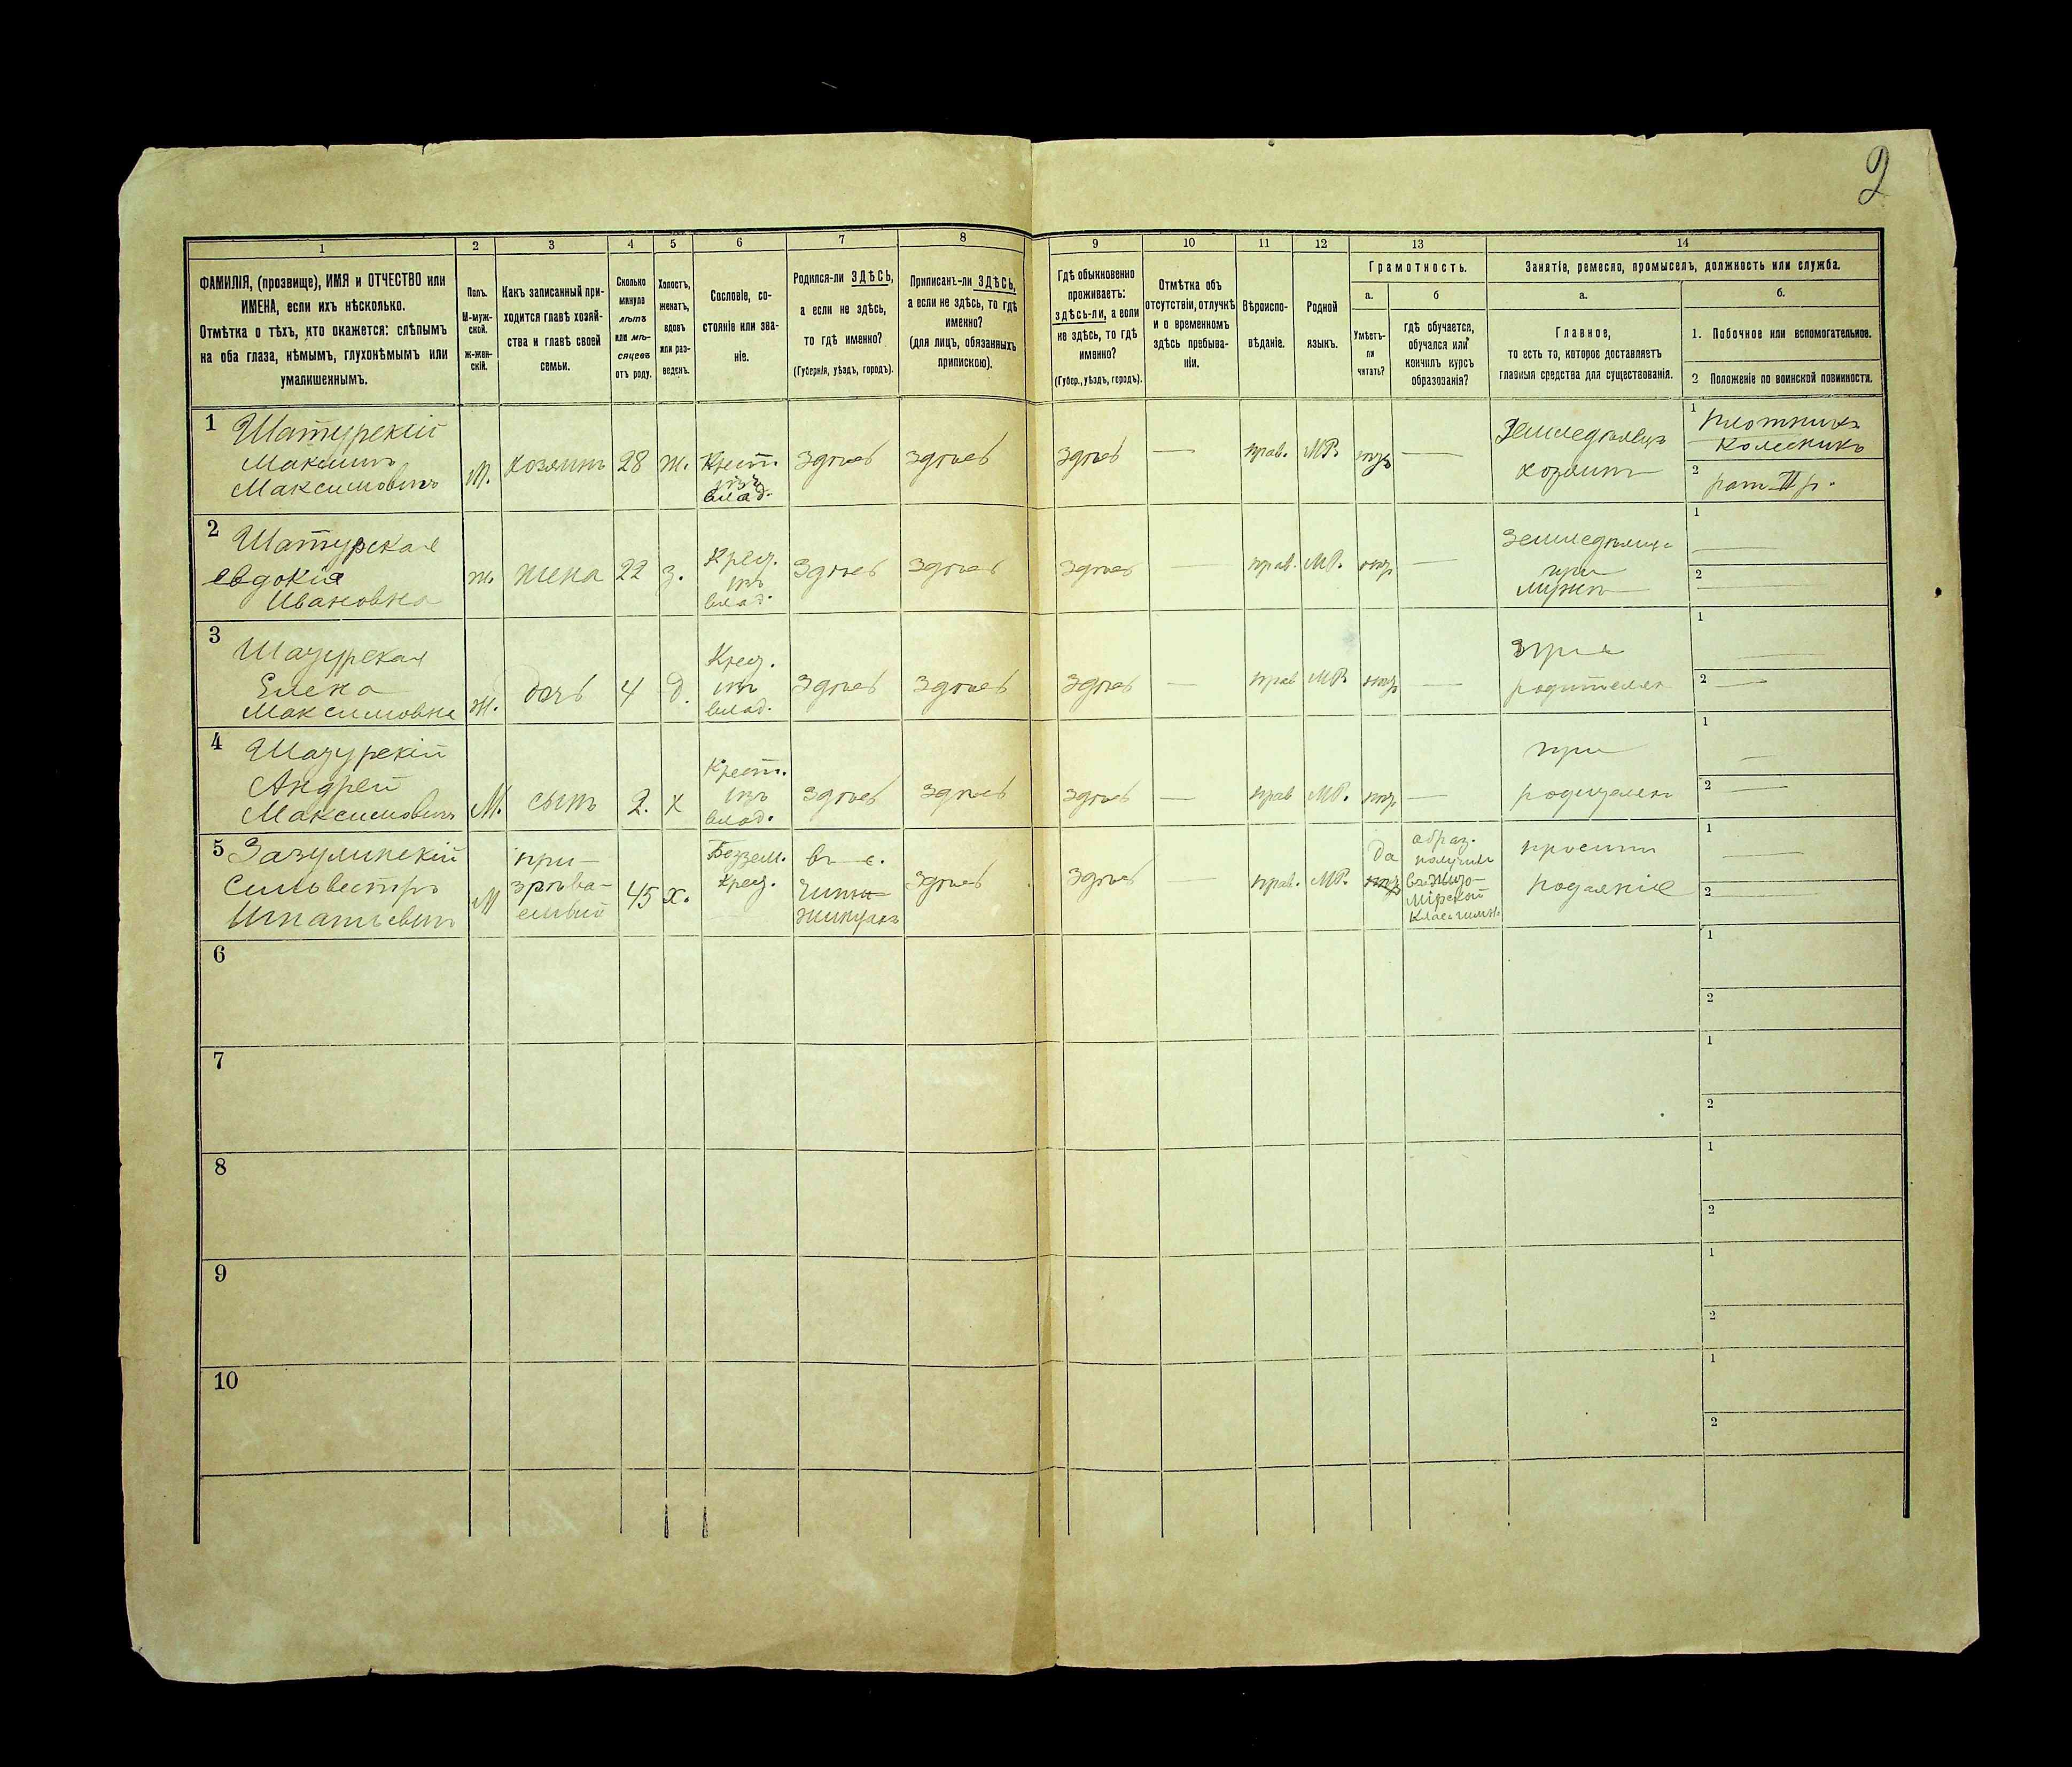 2
1 2 3 4 5 6 7 8 9 10 11 12 13 14
ФАМИЛІЯ, (прозвище), ИМЯ и ОТЧЕСТВО или
ИМЕНА, если ихъ нѣсколько.
Отмѣтка о тѣхъ, кто окажется: слѣпымъ
на оба глаза, нѣмымъ, глухонѣмымъ или
умалишеннымъ.
Полъ.
М-муж-
ской.
ж-жен-
скій.
Какъ записанный при-
ходится главѣ хозяй-
ства и главѣ своей
семьи.
Сколько
минуло
лѣтъ
или мѣ-
сяцевъ
отъ роду.
Холостъ,
женатъ,
вдовъ
или раз-
веденъ.
Сословіе, со-
стояніе или зва-
ніе.
Родился-ли ЗДѢСЬ,
а если не здѣсь,
то гдѣ именно?
(Губернія, уѣздъ, городъ).
Приписанъ-ли ЗДѢСЬ,
а если не здѣсь, то гдѣ
именно?
(для лицъ, обязанныхъ
припискою).
Гдѣ обыкновенно
проживаетъ:
здѣсь-ли, а если
не здѣсь, то гдѣ
именно?
(Губер., уѣздъ, городъ).
Отмѣтка объ
отсутствіи, отлучкѣ
и о временномъ
здѣсь пребыва-
ніи.
Вѣроиспо-
вѣданіе.
Родной
языкъ.
Грамотность.
а.
Умѣетъ-
ли
читать?
б
гдѣ обучается,
обучался или
кончилъ курсъ
образозанія?
Занятіе, ремесло, промыселъ, должность или служба.
а.
Главное,
то есть то, которое доставляетъ
главныя средства для существованія.
б.
1. Побочное или вспомогательное.
2 Положеніе по воинской повинности.
1 Шатурскій
Максимъ
Максимовичъ
М.
хозяинъ
28
ж.
Крест.
изъ
влад.
здѣсь
здѣсь
здѣсь
—
прав.
МР.
—
Земледѣлецъ
хозяинъ
1 плотникъ
колесникъ
2 рат. II р.
2 Шатурская
Евдокія
Ивановна
ж.
жена
22
з.
Крест.
изъ
влад.
здѣсь
здѣсь
здѣсь
—
прав.
МР.
—
при
мужѣ
1 —
2 —
3 Шатурская
Елена
Максимовна
ж.
дочь
4
д.
Крест.
изъ
влад.
здѣсь
здѣсь
здѣсь
—
прав
МР.
—
родителях
1 —
2 —
4 Шатурскій
Андрей
Максимовичъ
М.
сынъ
2.
х
Крест.
изъ
влад.
здѣсь
здѣсь
здѣсь
—
прав
МР.
—
при
родителях
1 —
2 —
5
Сильвестръ
Игнатьевичъ
М
при-
зрѣва-
емый
45
х.
Беззем.
Крест.
въ с.
здѣсь
здѣсь
—
прав.
МР.
да
образ.
получилъ
въ Жито-
мірской
просит
подаяніе
1 —
2 —
6
1
2
7
1
2
8
1
2
9
1
2
10
1
2